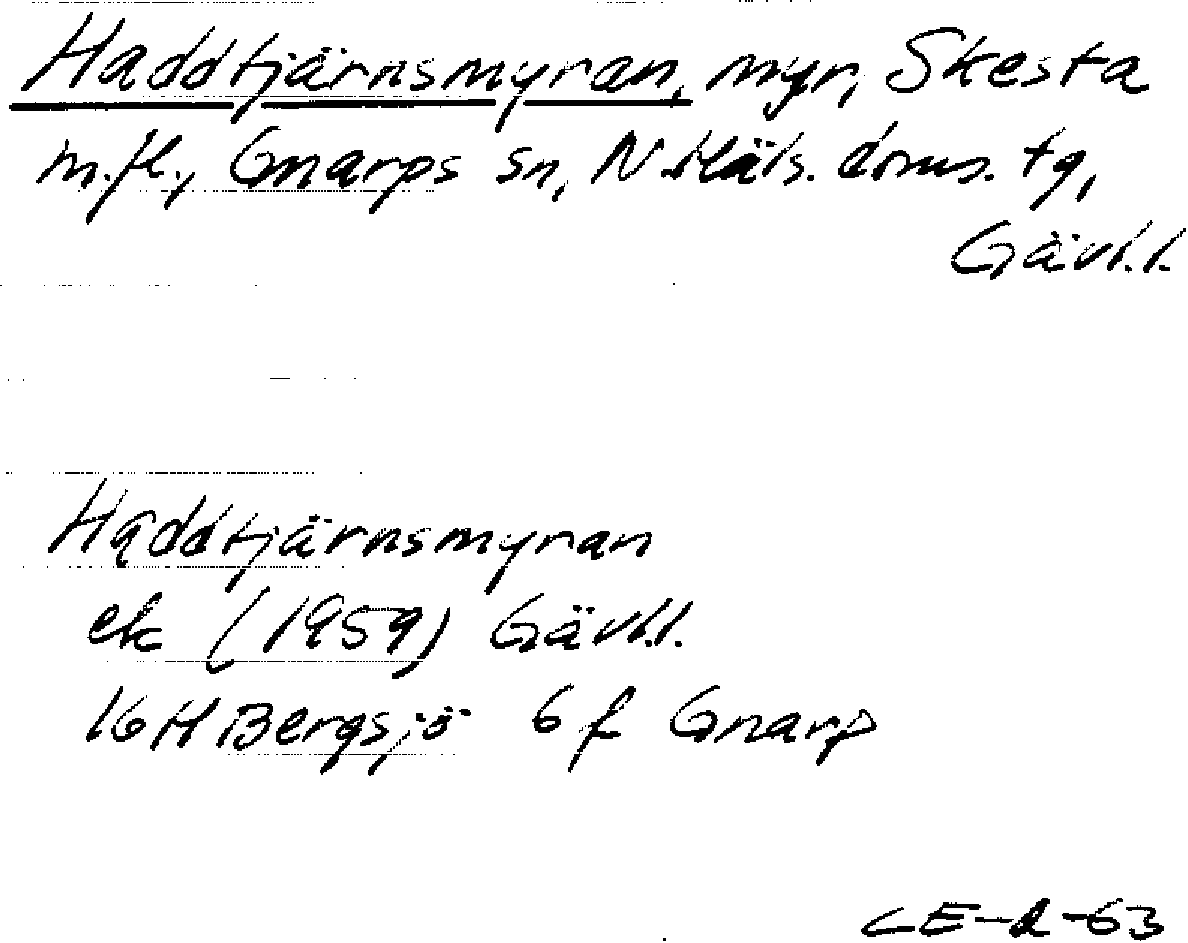 Haddtjärnsmyran, myr, Skesta
m.fl., Gnarps sn, N.Häls. doms. tg,
Gävl.l.
Haddtjärnsmyran
ek (1959) Gävl.l.
16H Bergsjö 6f Gnarp
CE-2-63